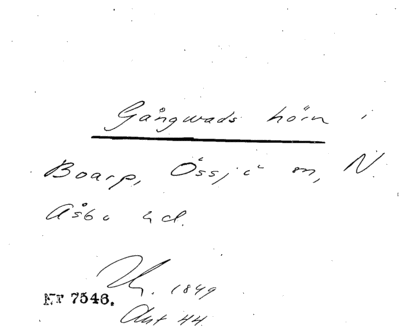 Gångwads hörn i
Boarp, Össjö sn, N.
Åsbo hd.
1849
Nr 7546.
Ant 44.